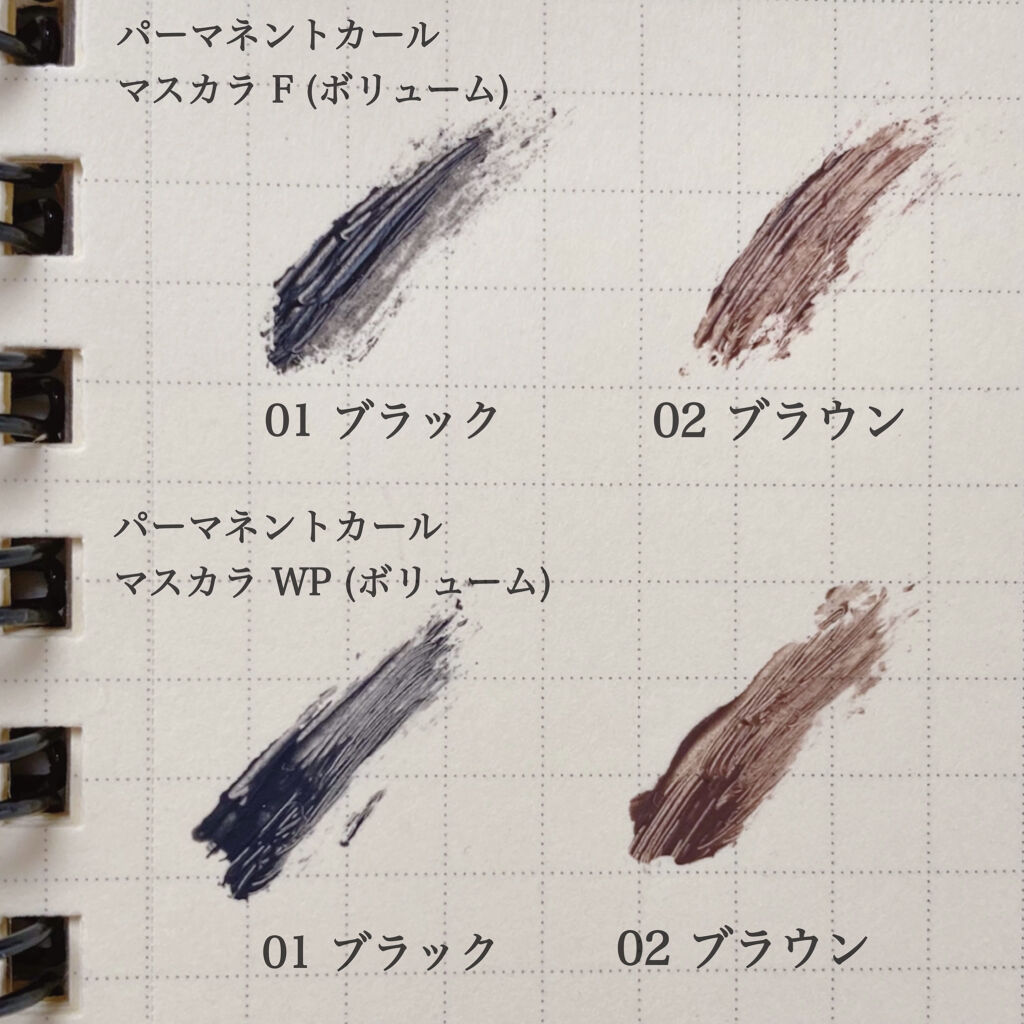 パーマネントカール
マスカラ F (ボリューム)
01 ブラック
02 ブラウン
パーマネントカール
マスカラ WP (ボリューム)
01 ブラック
02 ブラウン